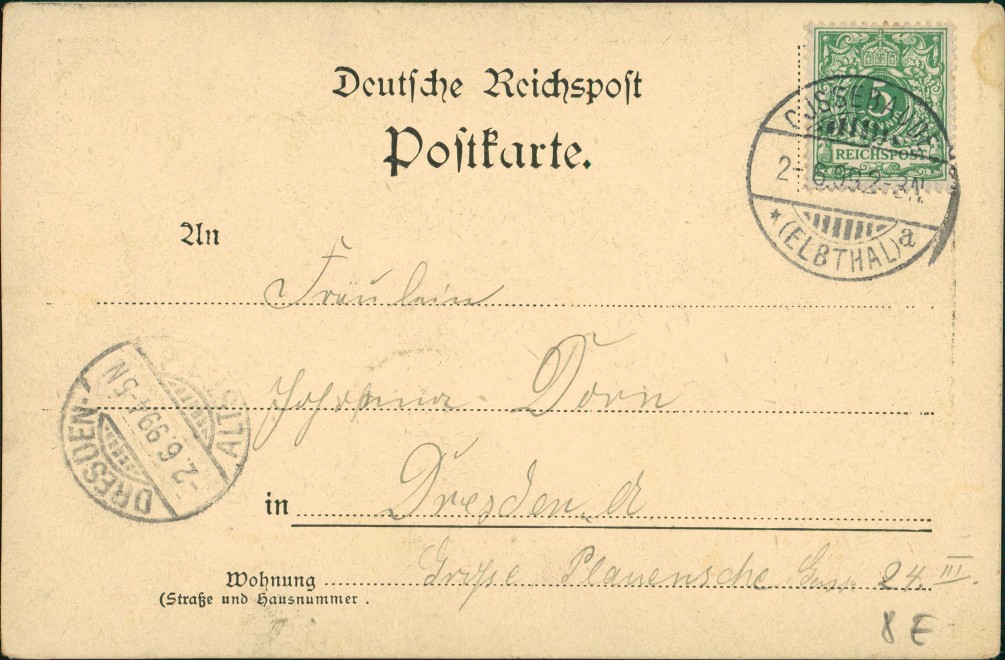 Deutsche Reichspost
Postkarte.
5
REICHSPOST
COSSEBAUDE
2-6.99.2-3N.
* (ELBTHAL) a
An
Fräulein
Johanna Dorn
in Dresden. A.
Wohnung Große Plauensche 24 III.
(Straße und Hausnummer.
DRESDEN-ALTST.
-2.6.99.4-5N
8 E